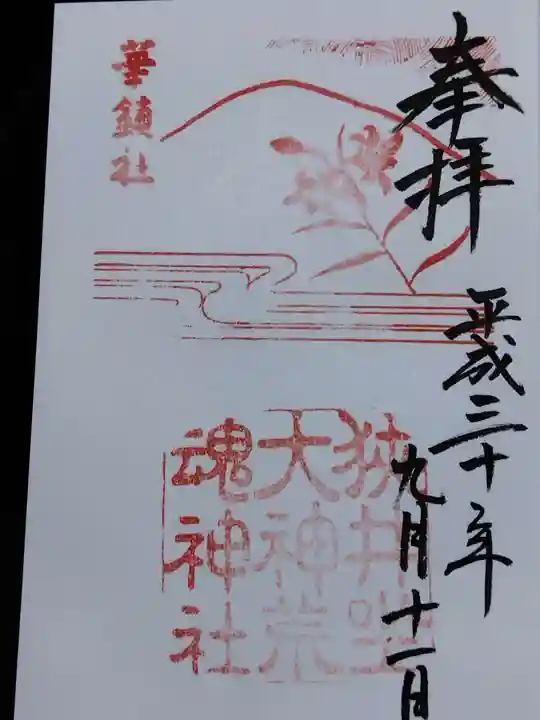 奉拝
平成三十年
九月十一日
狭井坐
大神荒
魂神社
華鎮社